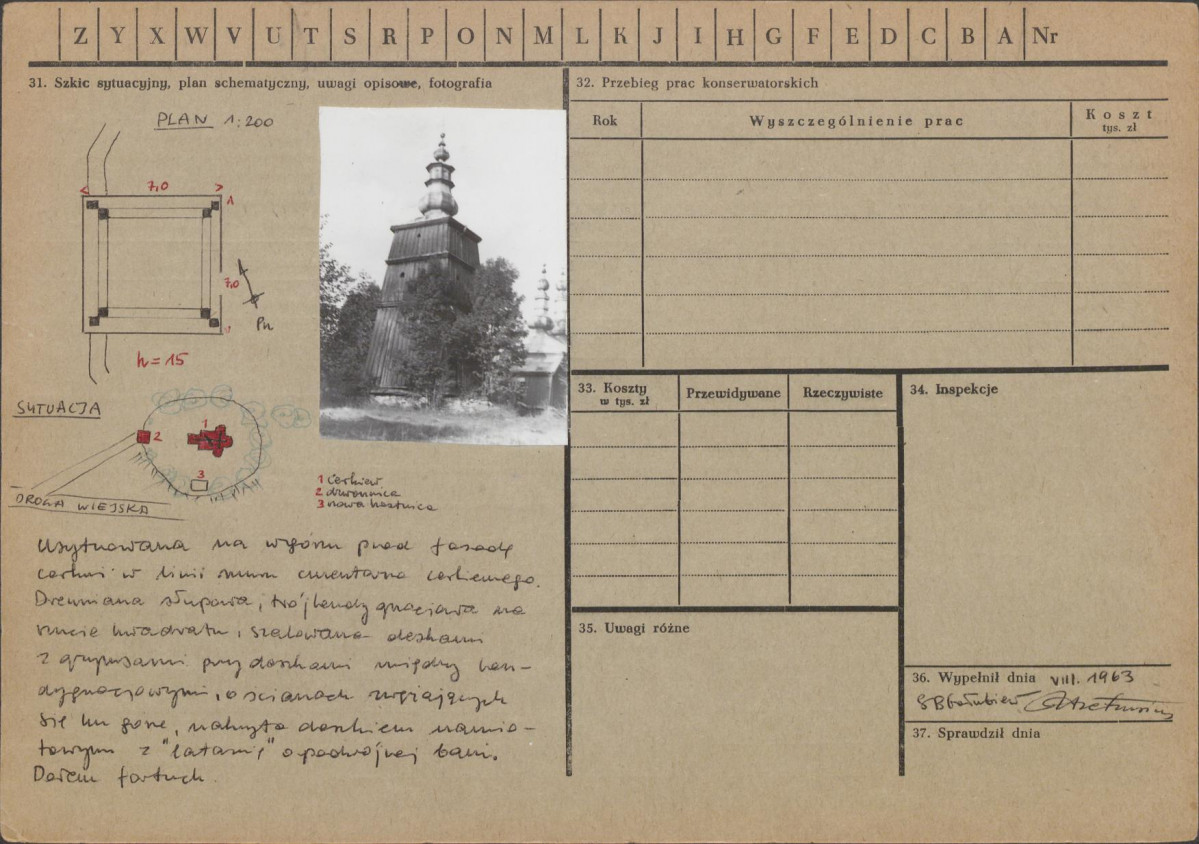 Z Y X W V U T S R P O N M L K J I H G F E D C B A Nr
31. Szkic sytuacyjny, plan schematyczny, uwagi opisowe, fotografia
PLAN 1:200
7,0
7,0
Pn
h = 15
SYTUACJA
1
2
3
DROGA WIEJSKA
1 cerkiew
2 dzwonnica
3 nowa kostnica
Usytuowana na wzgórzu przed fasadą
cerkwi w linii muru cmentarza cerkiewnego.
Drewniana słupowa, trójkondygnacjowa na
rzucie kwadratu, szalowana deskami
z gzymsami przydaszkami między kon-
dygnacjowymi, o ścianach zwężających
się ku górze, nakryta daszkiem namio-
towym z "latarnią" o podwójnej bani.
Dołem fartuch.
32. Przebieg prac konserwatorskich
Rok
Wyszczególnienie prac
Koszt
tys. zł
33. Koszty
w tys. zł
Przewidywane
Rzeczywiste
34. Inspekcje
35. Uwagi różne
36. Wypełnił dnia VIII. 1963
37. Sprawdził dnia